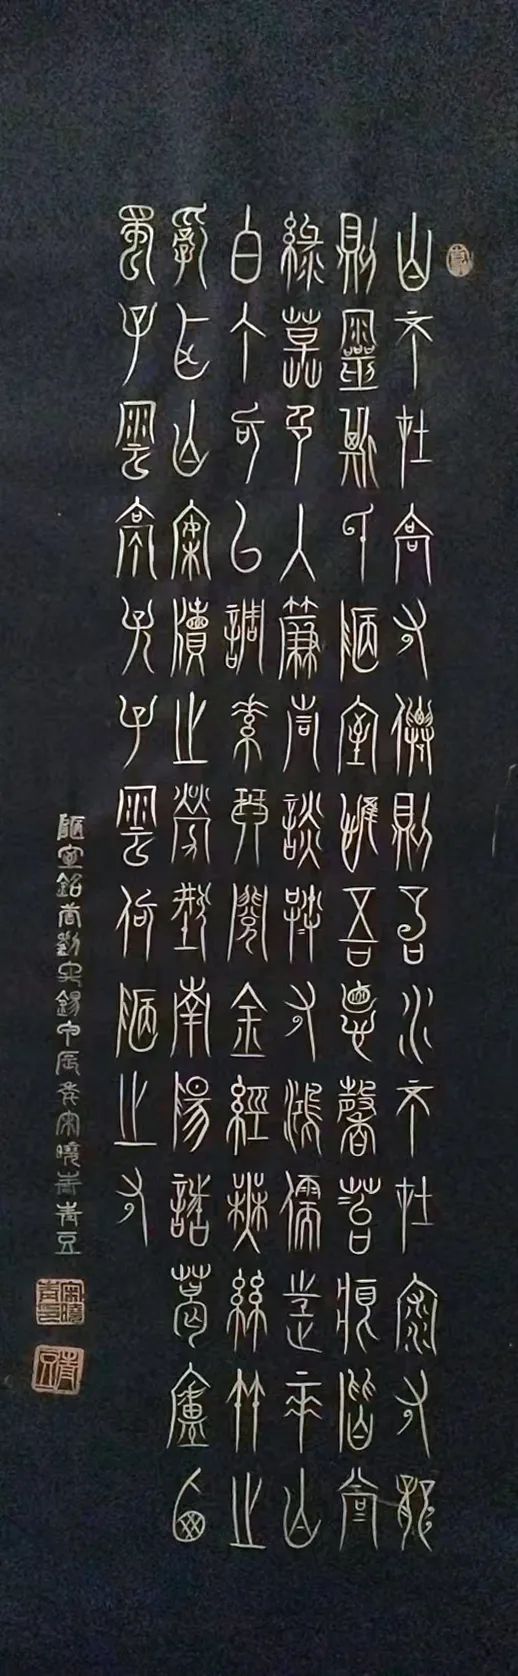 山不在高有僊則名水不在深有龍
則靈斯是陋室惟吾德馨苔痕階上
綠草色入簾青談笑有鴻儒往來亡
白丁可以調素琴閱金經無絲竹之
亂耳亡案牘之勞形南陽諸葛廬西
蜀子雲亭孔子雲何陋之有
陋室銘唐劉禹錫甲辰宋曉青青豆
宋曉青印
青豆